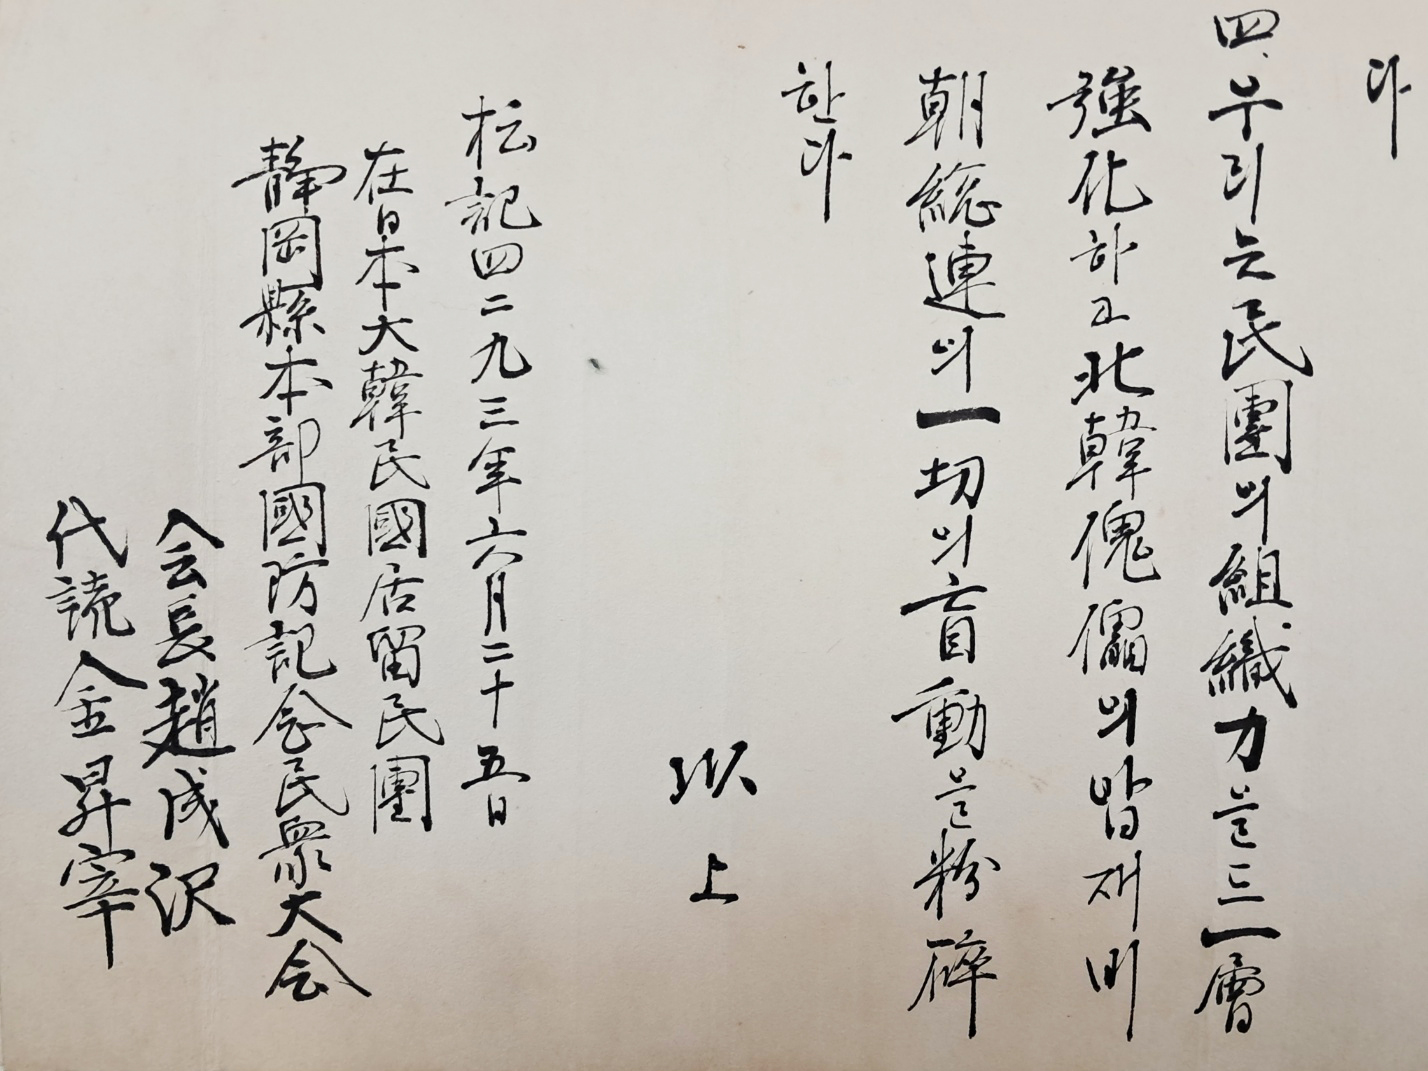 다
四、우리는民團의組織力을드一層
強化하고北韓傀儡의압재비
朝総連의一切의盲動을粉碎
한다
以上
枟記四二九三年六月二十五日
在日本大韓民國居留民團
静岡縣本部國防記念民衆大会
会長趙成沢
代読金昇宰